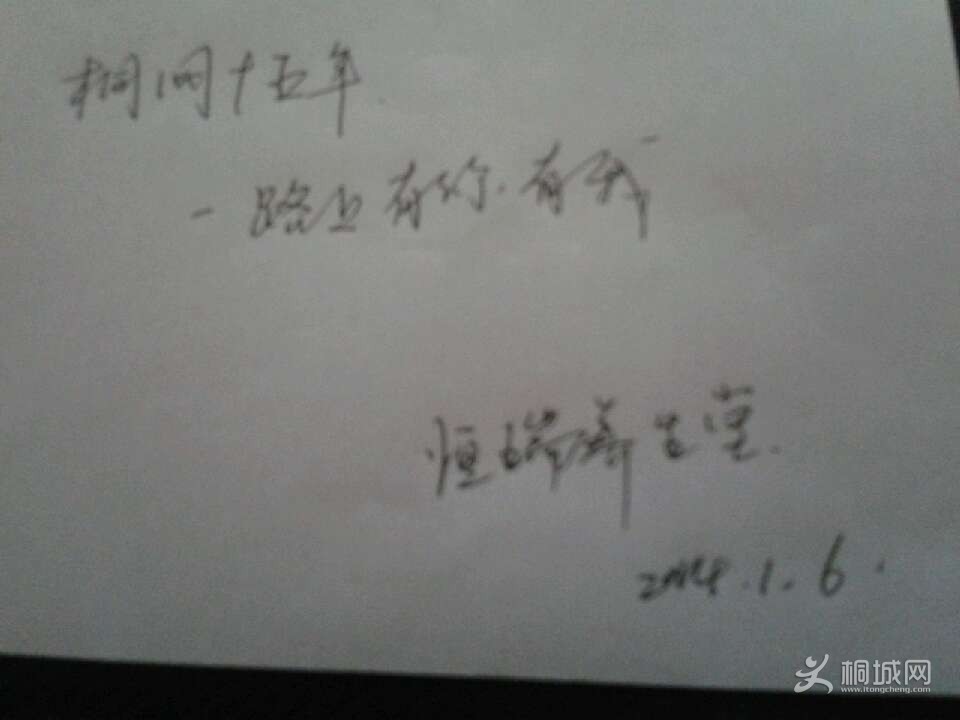 桐网十五年
一路上有你.有我
恒瑞养生堂.
2014.1.6.
桐城网
www.itongcheng.com